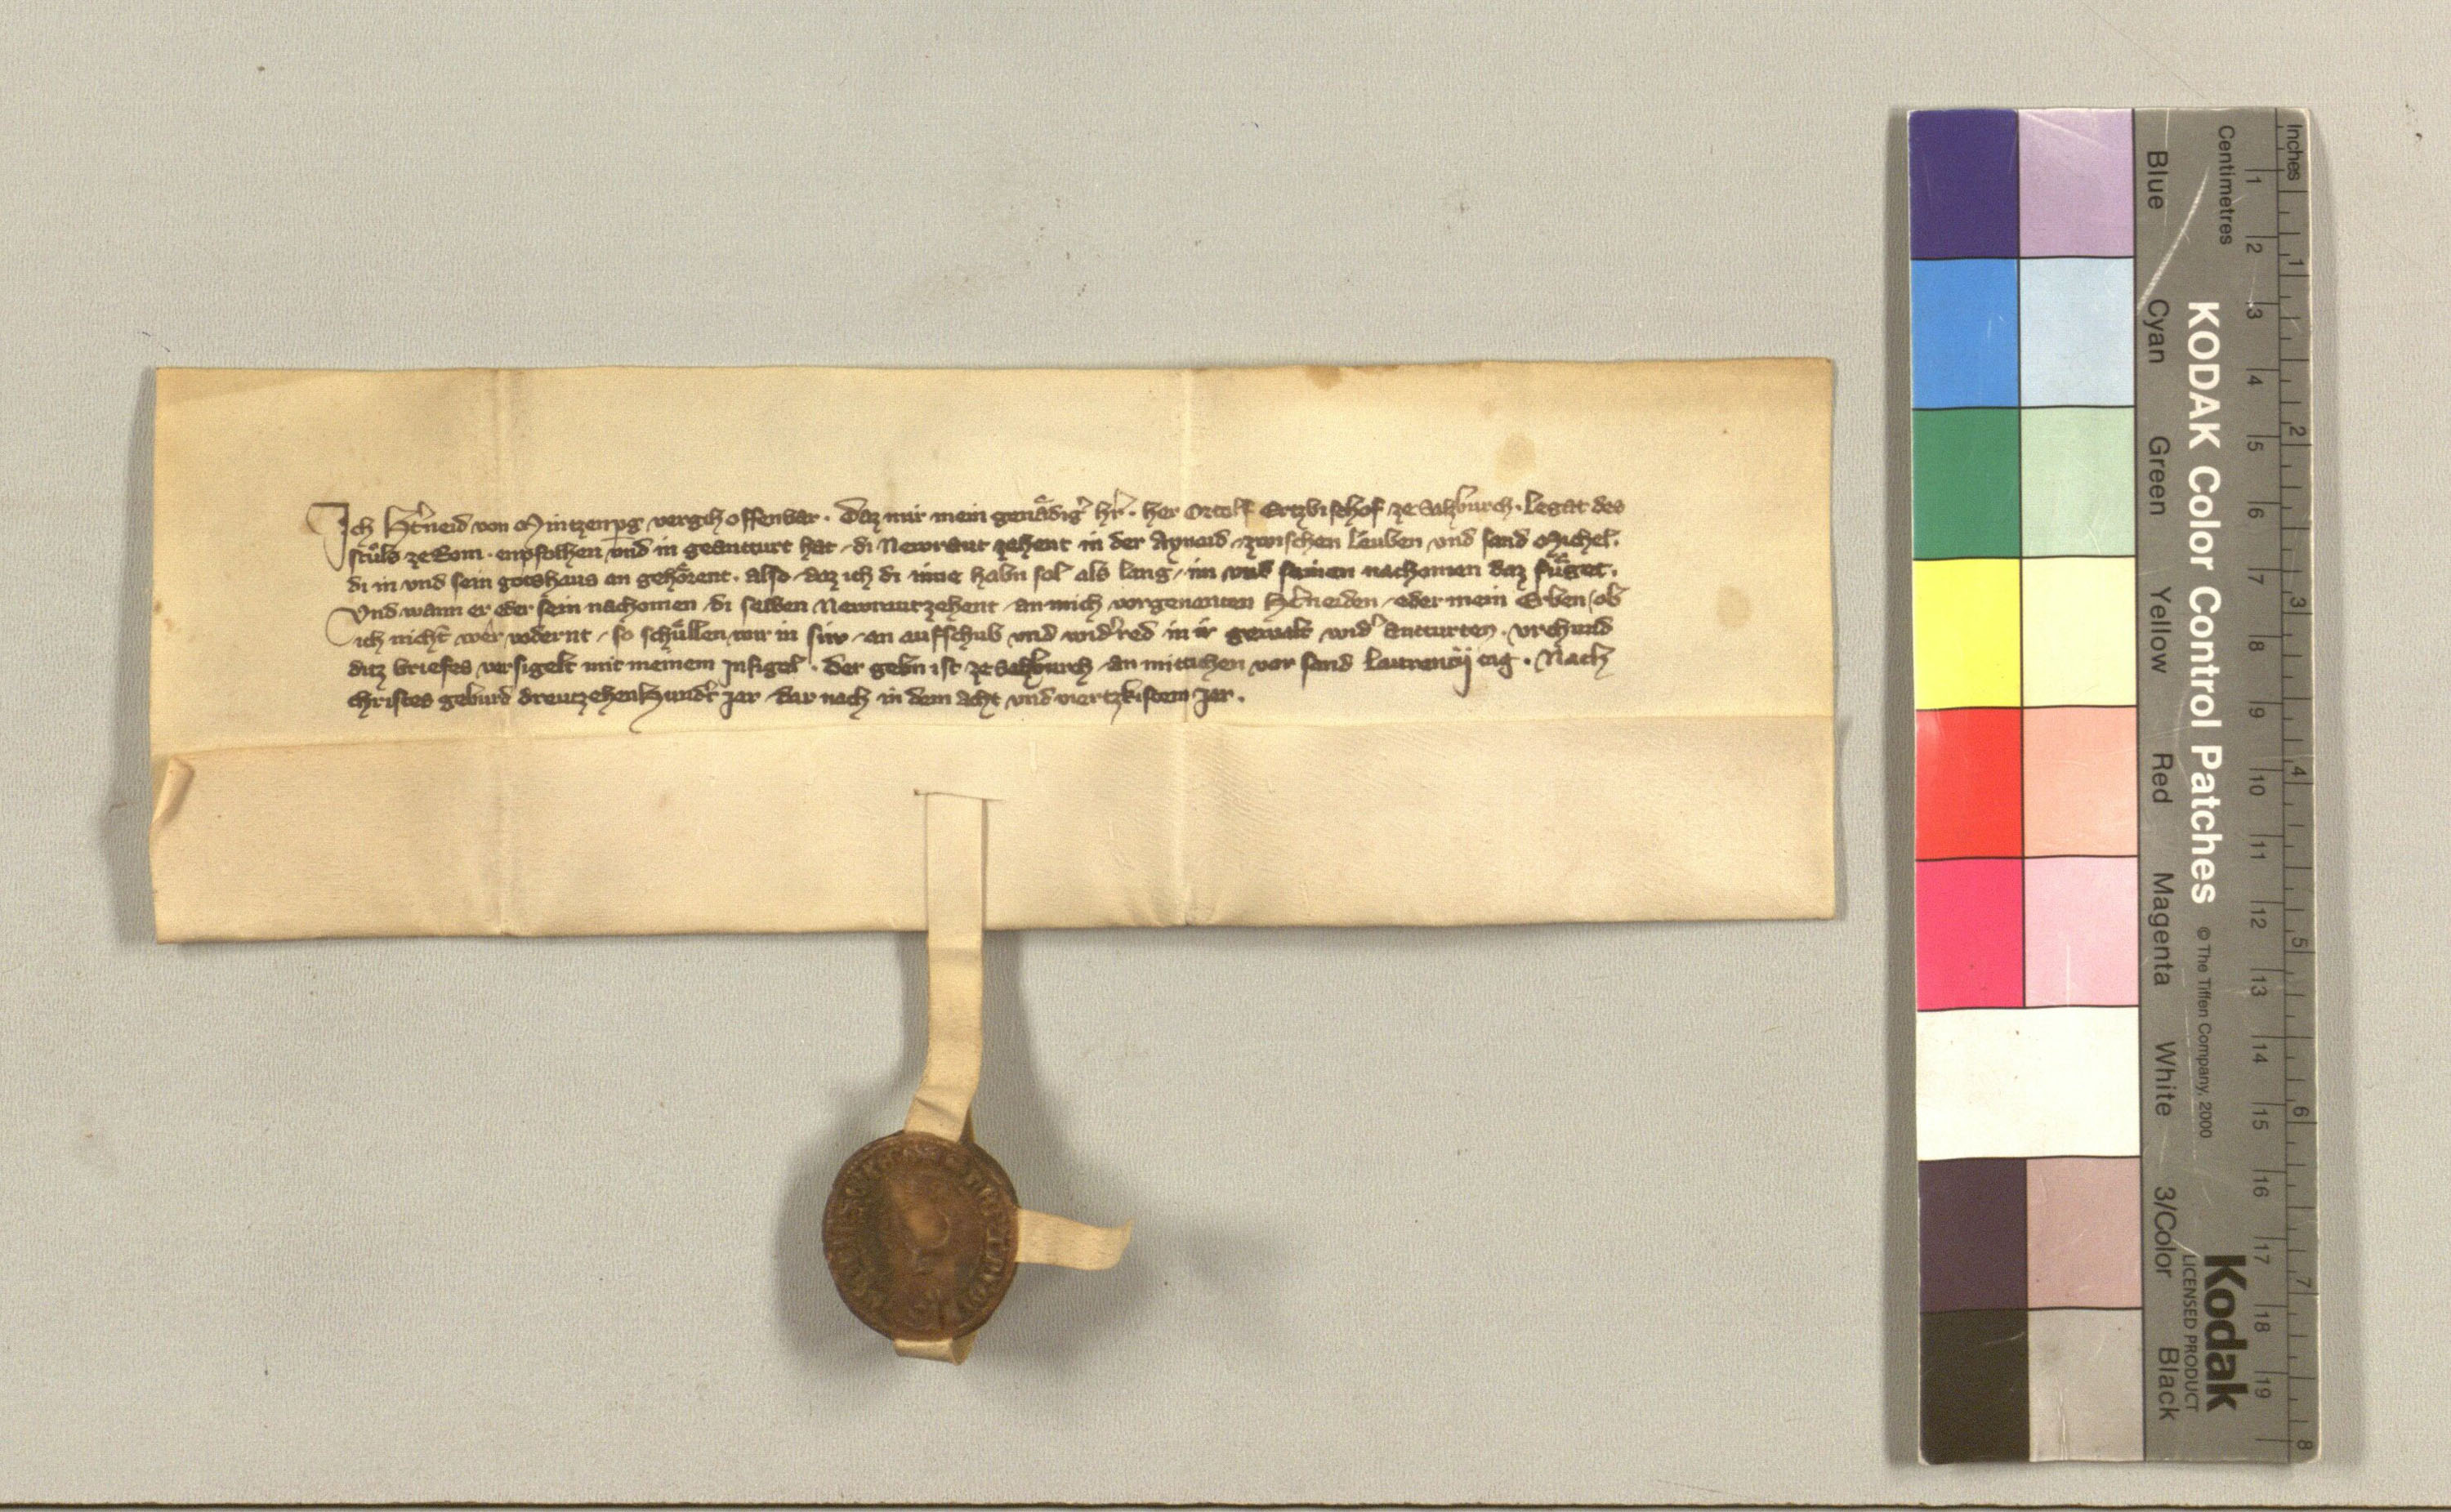 Ich Hͤtneid von Mintzenpͤg vergich offenbar. Daz mir mein genaͤdigͤ hͤr. her Ortolf Ertzbischof ze Saltzburch. Legat des
stuͦls ze Rom. enpfolhen und in geantturt hat / di Newraut zehent in der Aynoͤd / zwischen Leuben und sand Michel.
di in und sein gotshaus an gehoͤrent. also / daz ich di inne habn sol als lang / im und seinen nachomen daz fuͤget.
Und wann er oder sein nachomen / di selben Newrautzehent / an mich vorgenanten Hͤtneiden / oder mein Erben / ob
ich nicht wer vodernt / so schuͤllen wir in sin / an aufschub und widͤred in ir gewalt widͤ antturten. Urchund
ditz briefes versigelt mit meinem Insigel. Der gebn ist ze Saltzburch / an mittichen vor sand Laurencij tag. Nach
christes geburd dreutzehenhundͤt jar / dar nach in dem acht und viertzkistem jar.
KODAK Color Control Patches © The Tiffen Company, 2000
Kodak
LICENSED PRODUCT
Blue Cyan Green Yellow Red Magenta White 3/Color Black
Centimetres 1 2 3 4 5 6 7 8 9 10 11 12 13 14 15 16 17 18 19
Inches 1 2 3 4 5 6 7 8